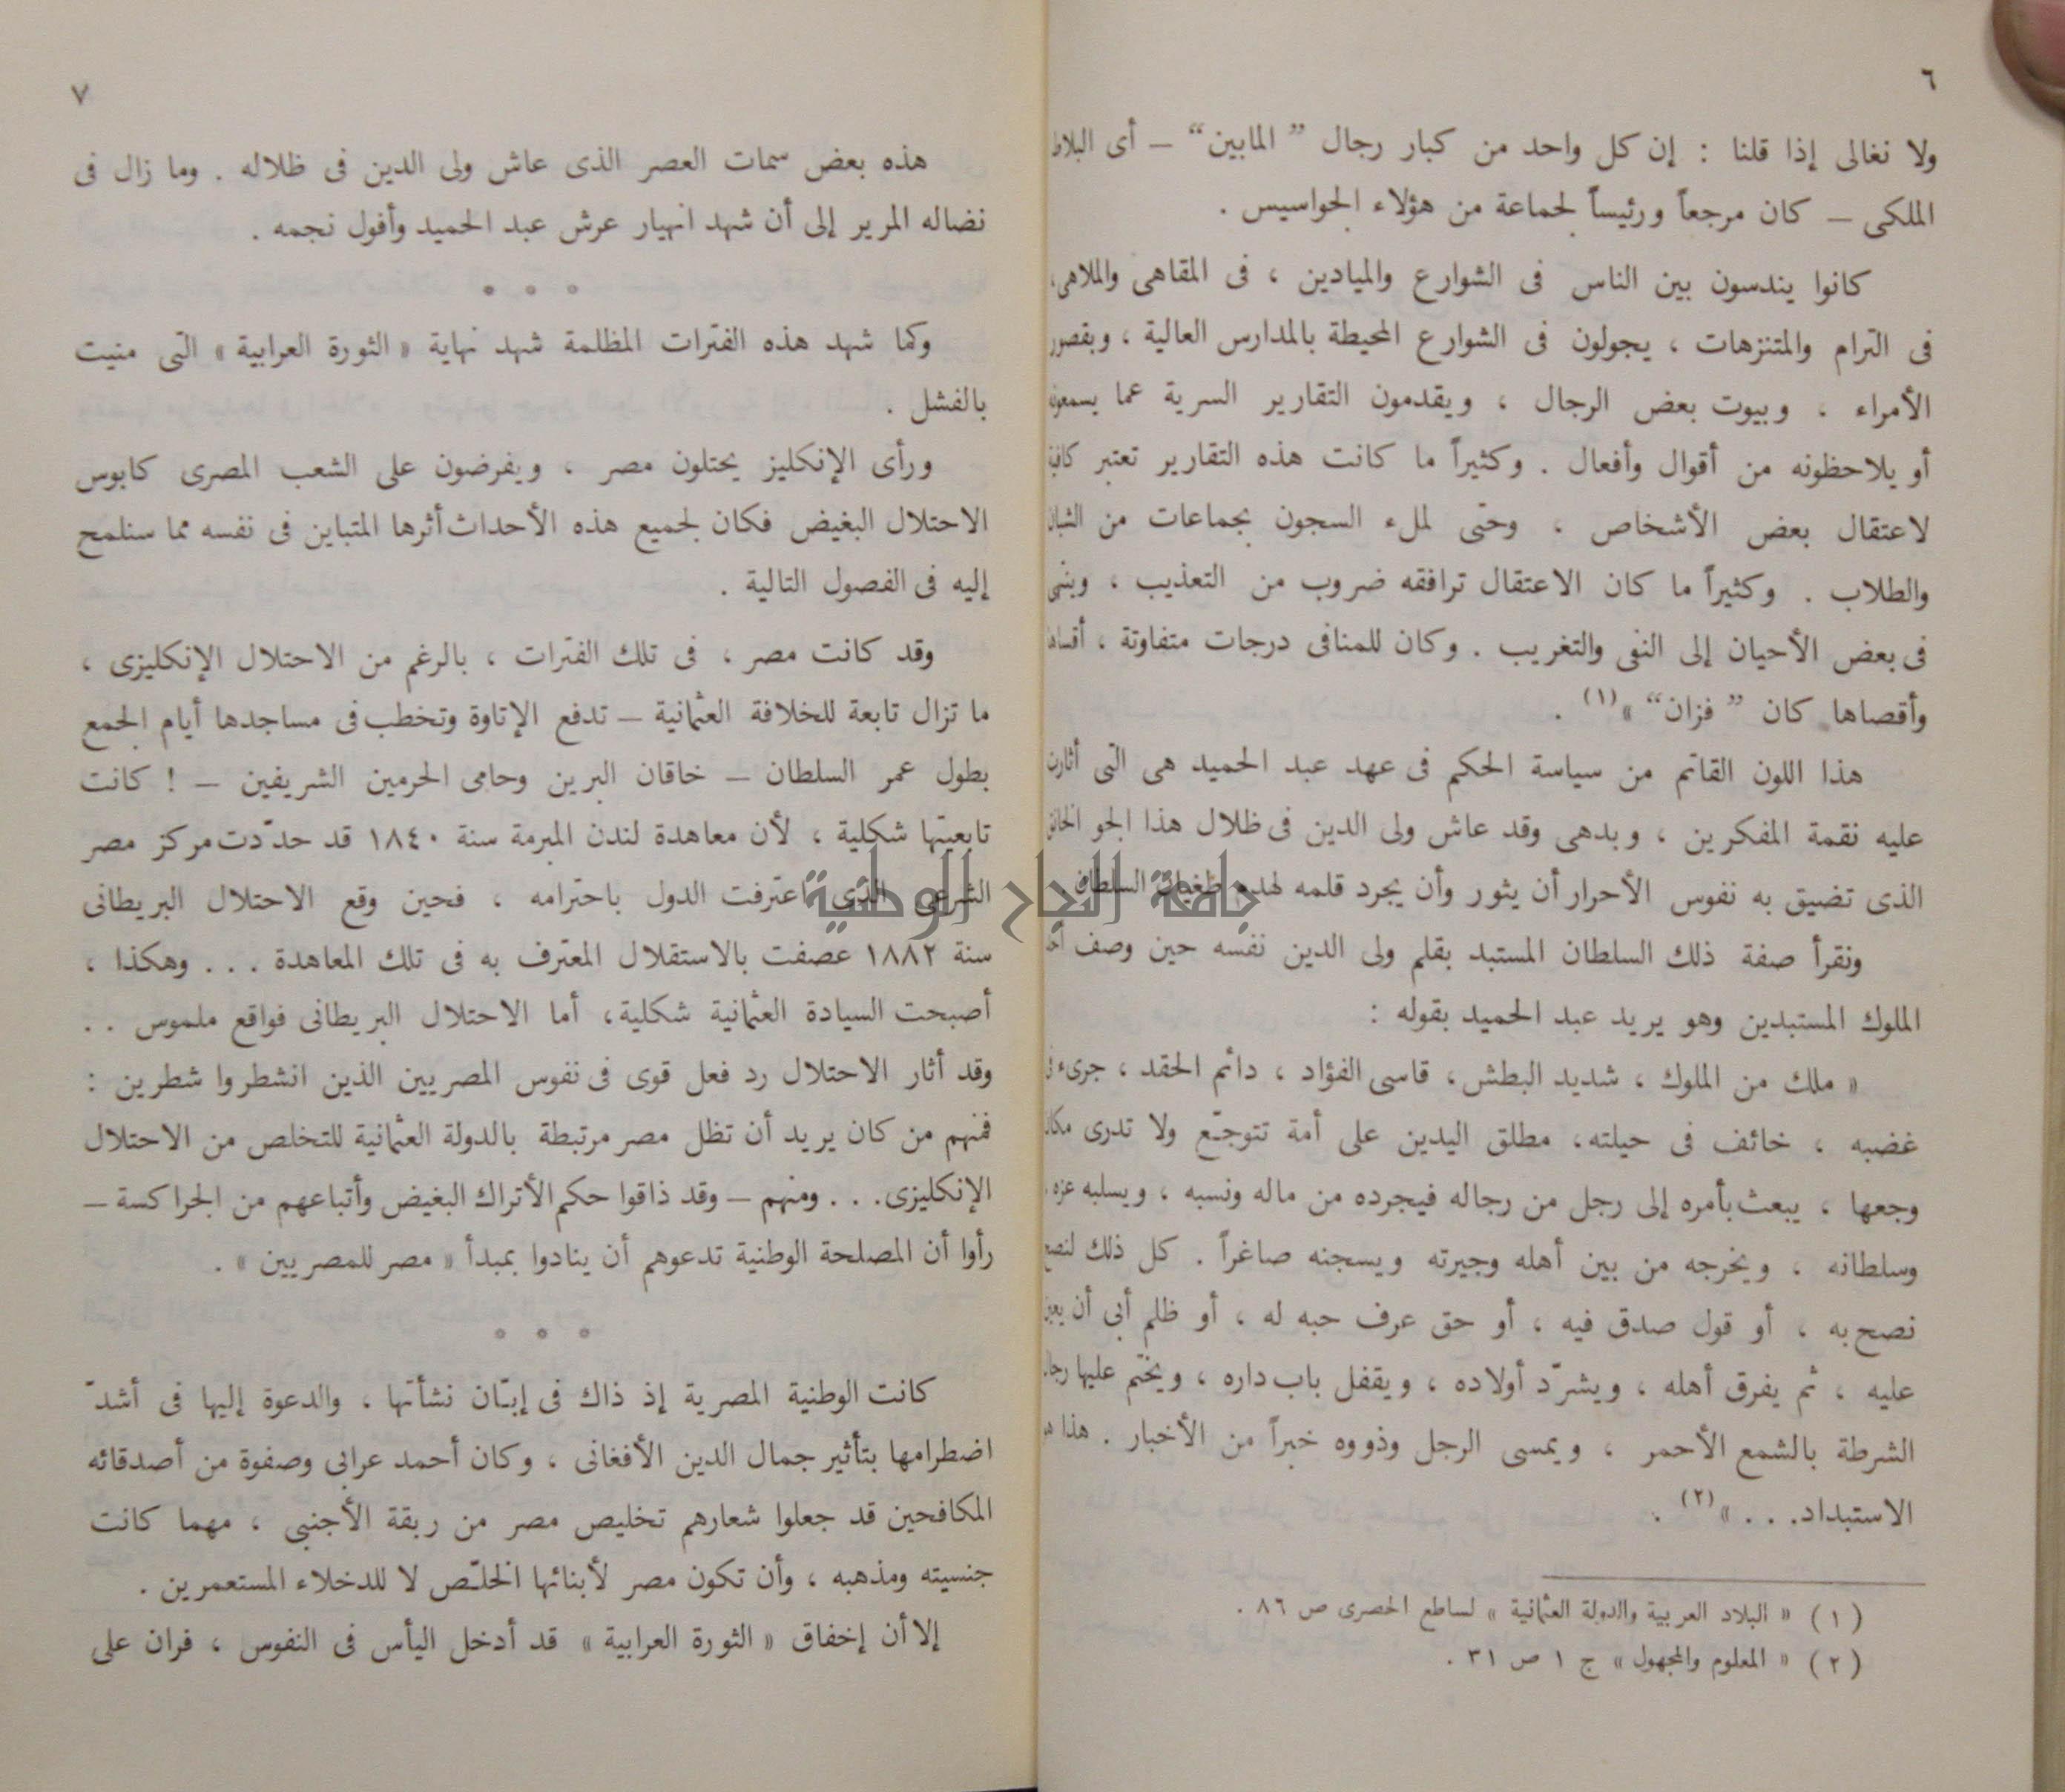 ٦
ولا نغالى إذا قلنا : إن كل واحد من كبار رجال ” المابين “ – أى البلاط
الملكى – كان مرجعاً ورئيساً لجماعة من هؤلاء الجواسيس .
كانوا يندسون بين الناس فى الشوارع والميادين ، فى المقاهى والملاهى ،
فى الترام والمتنزهات ، يجولون فى الشوارع المحيطة بالمدارس العالية ، وبقصور
الأمراء ، وبيوت بعض الرجال ، ويقدمون التقارير السرية عما يسمعونه
أو يلاحظونه من أقوال وأفعال . وكثيراً ما كانت هذه التقارير تعتبر كافية
لاعتقال بعض الأشخاص ، وحتى لملء السجون بجماعات من الشبان
والطلاب . وكثيراً ما كان الاعتقال ترافقه ضروب من التعذيب ، وينتهى
فى بعض الأحيان إلى النفى والتغريب . وكان للمنافى درجات متفاوتة ، أقساها
وأقصاها كان ” فزان “ »(١) .
هذا اللون القاتم من سياسة الحكم فى عهد عبد الحميد هى التى أثارت
عليه نقمة المفكرين ، وبدهى وقد عاش ولى الدين فى ظلال هذا الجو الخانق
الذى تضيق به نفوس الأحرار أن يثور وأن يجرد قلمه لهدم طغيان السلطان
ونقرأ صفة ذلك السلطان المستبد بقلم ولى الدين نفسه حين وصف أحد
الملوك المستبدين وهو يريد عبد الحميد بقوله :
« ملك من الملوك ، شديد البطش ، قاسى الفؤاد ، دائم الحقد ، جرىء فى
غضبه ، خائف فى حيلته ، مطلق اليدين على أمة تتوجّع ولا تدرى مكان
وجعها ، يبعث بأمره إلى رجل من رجاله فيجرده من ماله ونسبه ، ويسلبه عزه
وسلطانه ، ويخرجه من بين أهله وجيرته ويسجنه صاغراً . كل ذلك لنصح
نصح به ، أو قول صدق فيه ، أو حق عرف حبه له ، أو ظلم أبى أن يعين
عليه ، ثم يفرق أهله ، ويشرّد أولاده ، ويقفل باب داره ، ويختم عليها رجال
الشرطة بالشمع الأحمر ، ويمسى الرجل وذووه خبراً من الأخبار . هذا هو
الاستبداد. . . »(٢) .
(١) « البلاد العربية والدولة العثمانية » لساطع الحصرى ص ٨٦ .
(٢) « المعلوم والمجهول » ج ١ ص ٣١ .
٧
هذه بعض سمات العصر الذى عاش ولى الدين فى ظلاله . وما زال فى
نضاله المرير إلى أن شهد انهيار عرش عبد الحميد وأفول نجمه .
• • •
وكما شهد هذه الفترات المظلمة شهد نهاية « الثورة العرابية » التى منيت
بالفشل .
ورأى الإنكليز يحتلون مصر ، ويفرضون على الشعب المصرى كابوس
الاحتلال البغيض فكان لجميع هذه الأحداث أثرها المتباين فى نفسه مما سنلمح
إليه فى الفصول التالية .
وقد كانت مصر ، فى تلك الفترات ، بالرغم من الاحتلال الإنكليزى ،
ما تزال تابعة للخلافة العثمانية – تدفع الإتاوة وتخطب فى مساجدها أيام الجمع
بطول عمر السلطان – خاقان البرين وحامى الحرمين الشريفين – ! كانت
تابعيتها شكلية ، لأن معاهدة لندن المبرمة سنة ١٨٤٠ قد حدّدت مركز مصر
الشرعى الذى اعترفت الدول باحترامه ، فحين وقع الاحتلال البريطانى
سنة ١٨٨٢ عصفت بالاستقلال المعترف به فى تلك المعاهدة . . . وهكذا ،
أصبحت السيادة العثمانية شكلية ، أما الاحتلال البريطانى فواقع ملموس . .
وقد أثار الاحتلال رد فعل قوى فى نفوس المصريين الذين انشطروا شطرين :
فمنهم من كان يريد أن تظل مصر مرتبطة بالدولة العثمانية للتخلص من الاحتلال
الإنكليزى. . . ومنهم – وقد ذاقوا حكم الأتراك البغيض وأتباعهم من الجراكسة –
رأوا أن المصلحة الوطنية تدعوهم أن ينادوا بمبدأ « مصر للمصريين » .
• • •
كانت الوطنية المصرية إذ ذاك فى إبـّان نشأتها ، والدعوة إليها فى أشدّ
اضطرامها بتأثير جمال الدين الأفغانى ، وكان أحمد عرابى وصفوة من أصدقائه
المكافحين قد جعلوا شعارهم تخليص مصر من ربقة الأجنبى ، مهما كانت
جنسيته ومذهبه ، وأن تكون مصر لأبنائها الخلـّص لا للدخلاء المستعمرين .
إلا أن إخفاق « الثورة العرابية » قد أدخل اليأس فى النفوس ، فران على
جامعة النجاح الوطنية